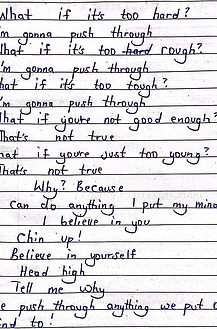 What if it's too hard?
'm gonna push through
hat if it's too hard rough?
'm gonna push through
hat if it's too tough?
'm gonna push through
hat if you're not good enough?
That's not true
hat if youre just too young?
That's not true
Why? Because
can do anything I put my mind
I believe in you
Chin up!
Believe in yourself
Head high
Tell me why
e push through anything we put o
ind to!